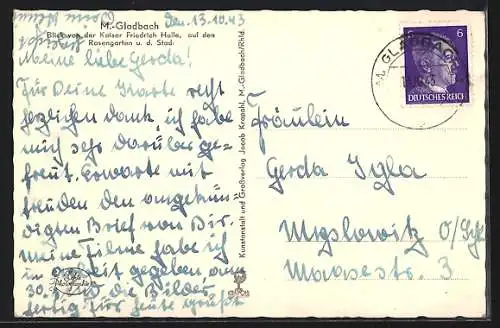 M.-Gladbach
Blick von der Kaiser Friedrich Halle, auf den
Rosengarten u. d. Stadt
Den. 13.10.43
Meine liebe Gerda!
Für Deine Karte recht
herzlichen dank, ich habe
mich sehr darüber ge-
freut. Erwarte mit
freuden den angekün-
digten Brief von Dir.
meine Filme habe ich
in gegeben, am
30. die Bilder
fertig für heute grüßt
Kunstanstalt und Großverlag Jacob Krapohl, M.-Gladbach/Rhld.
M. GLADBACH
6
DEUTSCHES REICH
Fräulein
Gerda Igla
Myslowitz O/Schl
Maasestr. 3